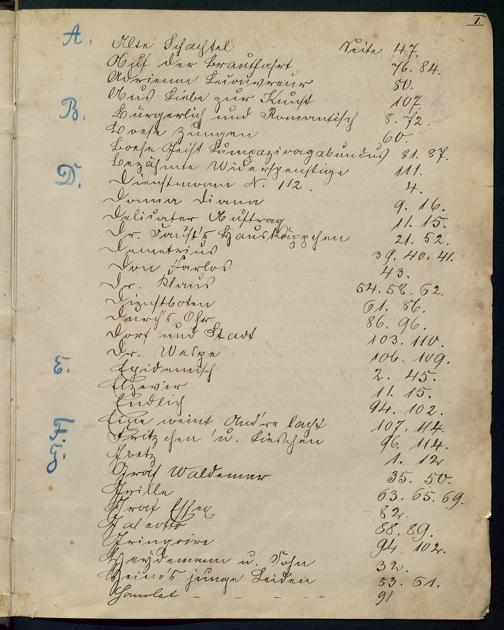 I.
A. Alte Schachtel Seite 47.
Auf der Brautfahrt 76. 84.
Adrienne Lecouvreur 50.
Aus Liebe zur Kunst 107
B. Bürgerlich und Romantisch 8. 72.
Boese Zungen 60
Boese Geist Lumpazivagabundus 81. 87.
Bezähmte Widerspenstige 111.
D. Dienstmann N. 112. 4.
Donna Diana 9. 16.
Delicater Auftrag 11. 15.
Dr. Faust's Hauskäppchen 21. 52.
Demetrius 39. 40. 41.
Don Carlos 43.
Dr. Klaus 54. 58. 62.
Dienstboten 61. 86.
Durch's Ohr 86. 96.
Dorf und Stadt 103. 110.
Dr. Wespe 106. 109.
E. Epidemisch 2. 45.
Elzevier 11. 15.
Endlich 94. 102.
Eine weint And're lacht 107. 114.
F. Fritzchen u. Lieschen 96. 114.
G. 1. 12.
Graf Waldemar 35. 50.
Grille 63. 65. 69.
Graf Essex 82.
Galeotto 88. 89.
Gringoire 94. 102.
Heydemann u. Sohn 32.
Heine's junge Leiden 53. 61.
Hamlet - - - - - 91